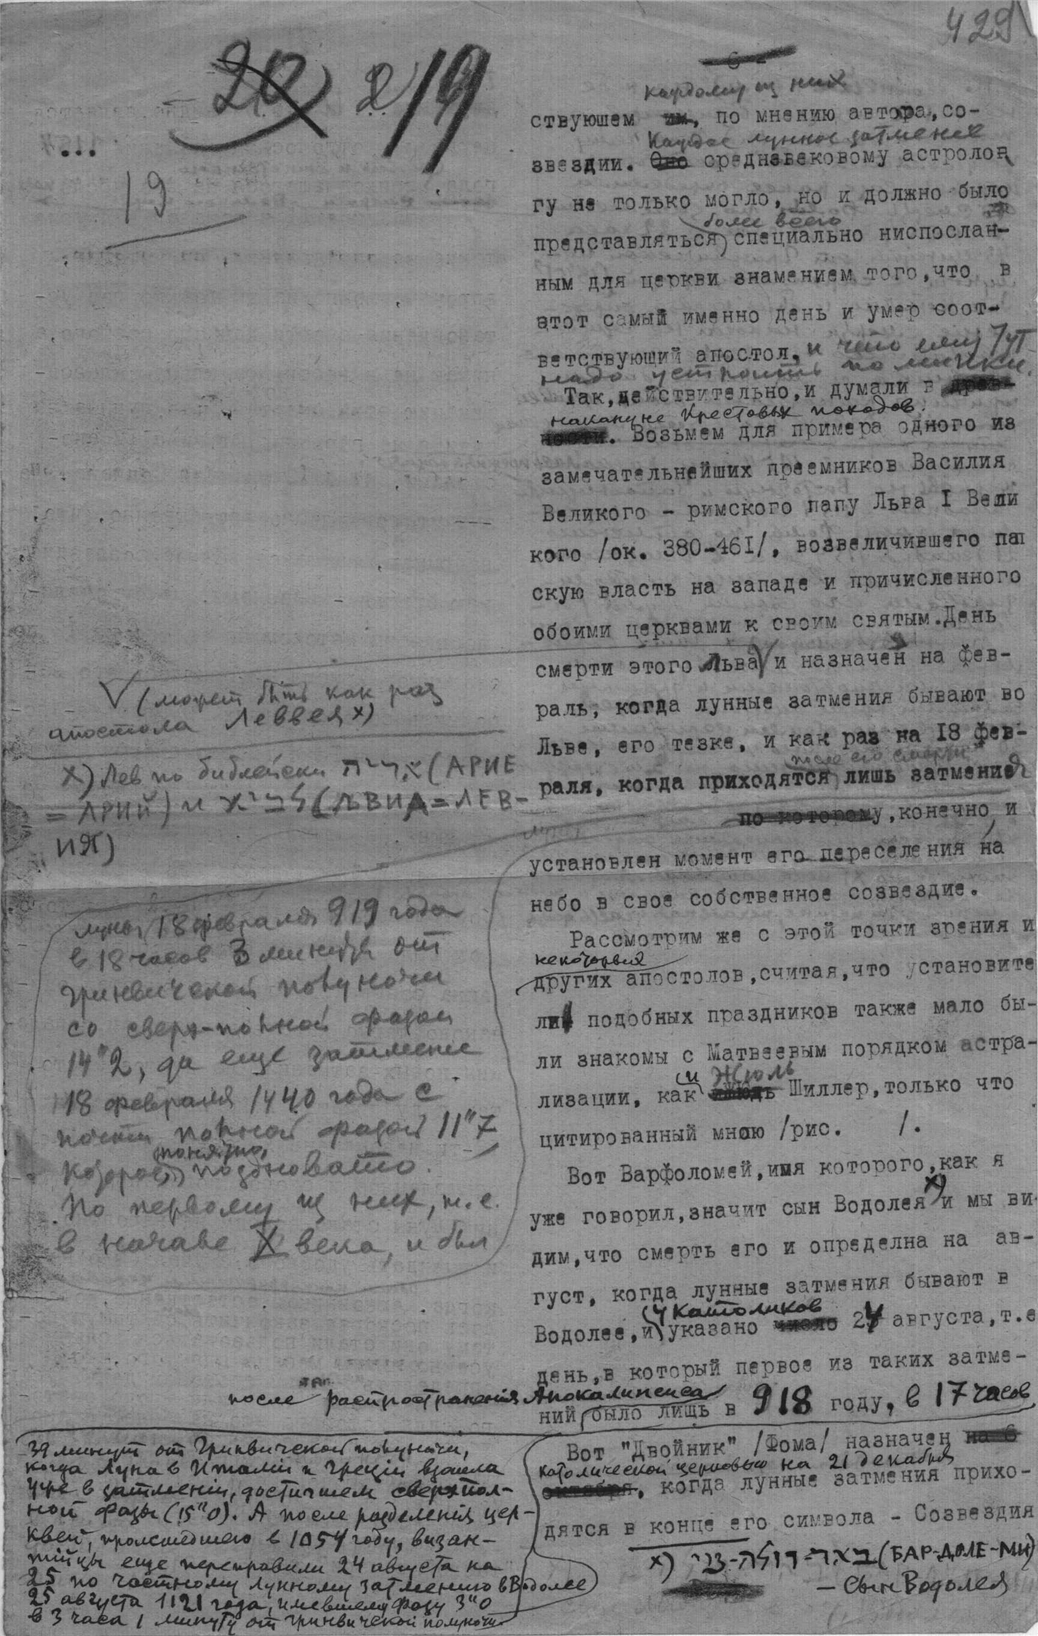 429
20 2/19
19
- 6 -
каждому из них
ствуюшем им, по мнению автора, со-
Каждое лунное затмение
звездии. Оно средневековому астроло
гу не только могло, но и должно было
более всего
представляться специально ниспослан-
ным для церкви знамением того,что в
этот самый именно день и умер соот-
ветствующий апостол, и что ему тут
надо устроить поминки.
Так,действительно,и думали в древ-
накануне Крестовых походов.
ности. Возьмем для примера одного из
замечательнейших преемников Василия
Великого - римского папу Льва I Вели
кого /ок. 380-461/, возвеличившего пап
скую власть на западе и причисленного
обоими церквами к своим святым.День
смерти этого Льва √ и назначен на фев-
√ (может быть как раз
апостола Леввея х)
раль, когда лунные затмения бывают во
Льве, его тезке, и как раз на 18 фев-
после его смерти
раля, когда приходятся лишь затмения
х) Лев по библейски אריה (АРИЕ
= АРИЙ) и לביא (ЛЬВИА = ЛЕВ-
ИЯ)
по которому,конечно, и
установлен момент его переселения на
небо в свое собственное созвездие.
луны 18 февраля 919 года
в 18 часов 3 минуты от
гринвической полуночи
со сверх-полной фазой
14"2, да еще затмение
18 февраля 1440 года с
почти полной фазой 11"7
которое, понятно, поздновато.
По первому из них, т.е.
в начале X века, и был
Рассмотрим же с этой точки зрения и
некоторых
других апостолов,считая,что установите
ли подобных праздников также мало бы-
ли знакомы с Матвеевым порядком астра-
лизации, как и Жюль Шиллер,только что
цитированный мною /рис. /.
Вот Варфоломей,имя которого,как я
уже говорил,значит сын Водолея х) и мы ви-
дим,что смерть его и определна на ав-
густ, когда лунные затмения бывают в
у католиков
Водолее,и указано число 24 августа,т.е
день,в который первое из таких затме-
после распространения Апокалипсиса
ний было лишь в 918 году, в 17 часов
39 минут от Гринвической полуночи,
когда Луна в Италии и Греции взошла
уже в затмении, достигшем сверхпол-
ной фазы (15"0). А после разделения цер-
квей, происшедшего в 1054 году, визан-
тийцы еще переправили 24 августа на
25 по частному лунному затмению в Водолее
25 августа 1121 года, имевшему фазу 3"0
в 3 часа 1 минуту от гринвической полуночи.
Вот "Двойник" /Фома/ назначен на 6
католической церковью на 21 декабря
октября, когда лунные затмения прихо-
дятся в конце его символа - Созвездия
х) (БАР-ДОЛЕ-МИ)
— сын Водолея